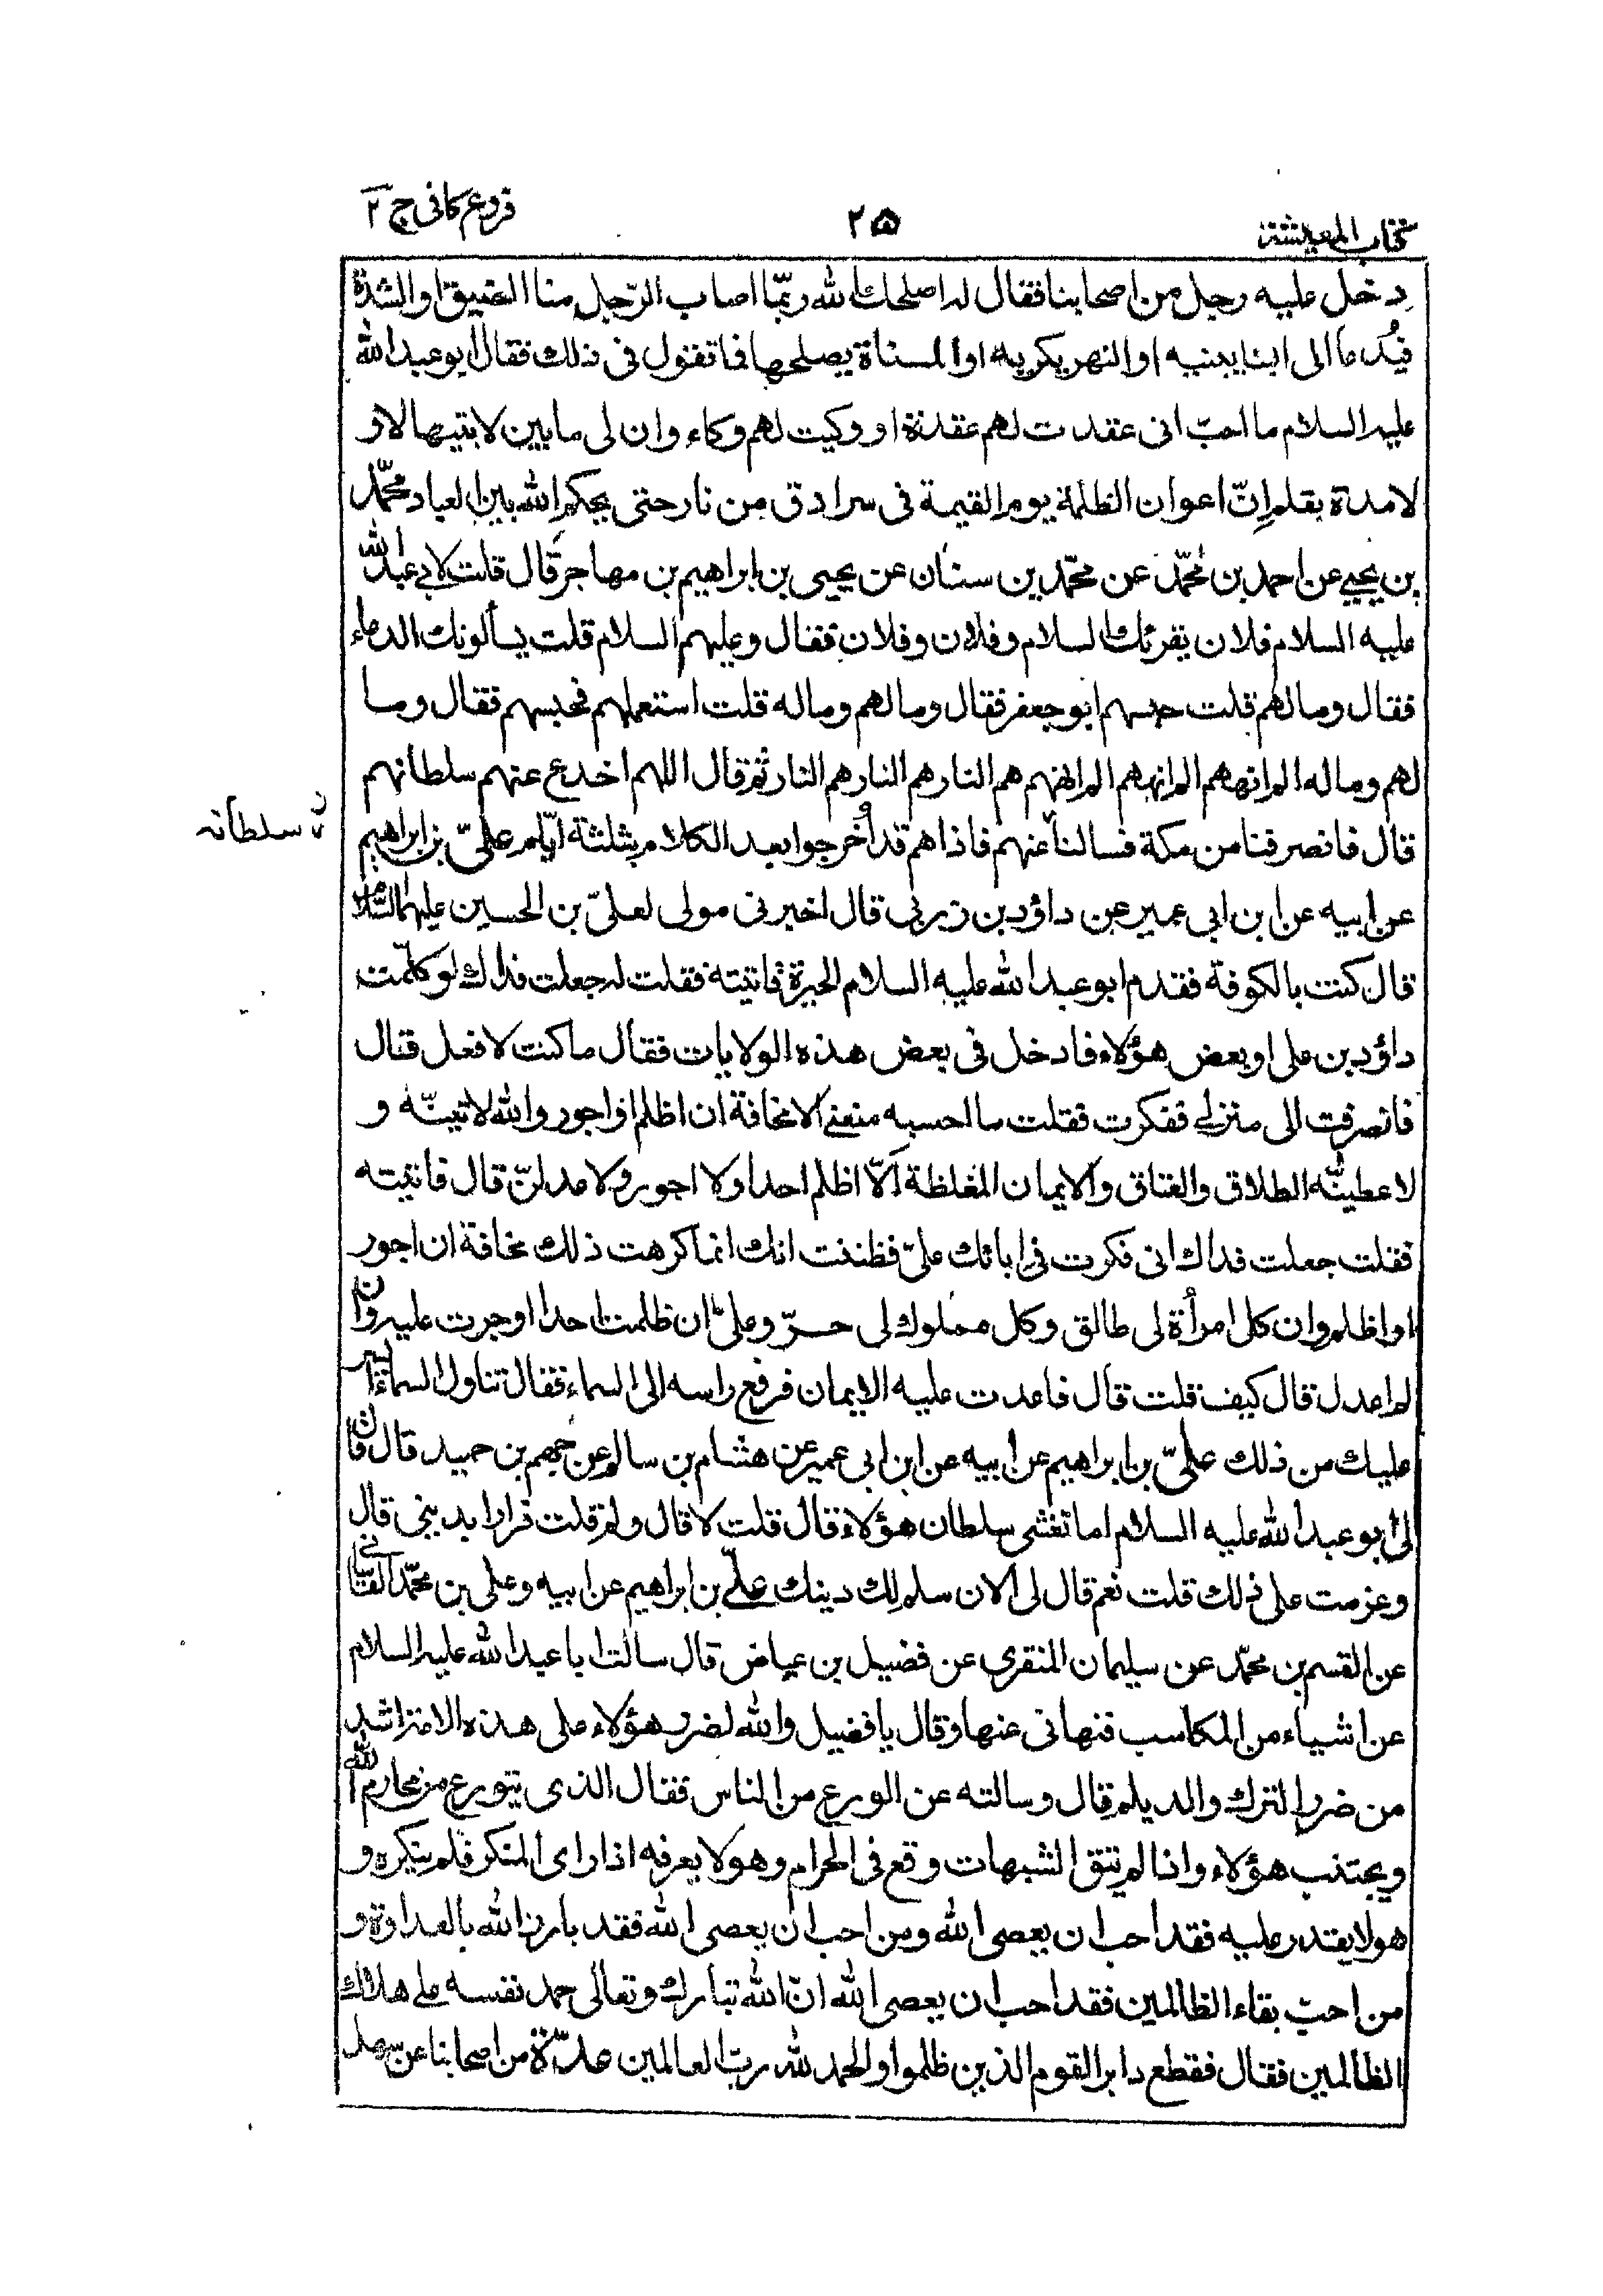 كتاب المعيشة ٢٥ فروع كافى ج ٢
دخل عليه رجل من اصحابنا فقال له اصلحك الله ربّما اصاب الرّجل منا الضيق او الشدة
فيُدعا الى البنا يبنيه او النهر يكريه او المسناة يصلحها فما تقول فى ذلك فقال ابو عبد الله
عليه السلام ما احبّ انى عقدت لهم عقدة او وكيت لهم وكاء وان لى ما بين لابتيها لا و
لا مدة بقلم اِنّ اعوان الظلمة يوم القيمة فى سرادق من نار حتى يحكم الله بين العباد محمّد
بن يحيى عن احمد بن محمّد عن محمّد بن سنان عن يحيى بن ابراهيم بن مهاجر قال قلت لابى عبد الله
عليه السلام فلان يقرئك السلام وفلان وفلان فقال وعليهم السلام قلت يسألونك الدعاء
فقال وما لهم قلت حبسهم ابو جعفر فقال وما لهم وماله قلت استعملهم فحبسهم فقال وما
لهم وماله الم انههم الم انههم الم انههم هم النار هم النار هم النار ثم قال اللهم اخدع عنهم سلطانهم
سلطانه
قال فانصرفنا من مكة فسالنا عنهم فاذاهم قد اُخرجوا بعد الكلام بثلثة ايّام علىّ بن ابراهيم
عن ابيه عن ابن ابى عمير عن داؤد بن زربى قال اخبرنى مولى لعلىّ بن الحسين عليهما السّلام
قال كنت بالكوفة فقدم ابو عبد الله عليه السلام الحيرة فاتيته فقلت له جعلت فداك لو كلّمت
داؤد بن على او بعض هؤلاء فادخل فى بعض هذه الولايات فقال ما كنت لافعل قال
فانصرفت الى منزلى ففكرت فقلت ما احسبه منعنى الا مخافة ان اظلم او اجور والله لاتينّه و
لاعطينّه الطلاق والعتاق والايمان المغلظة الّا اظلم احدا ولا اجور ولاعدلنّ قال فاتيته
فقلت جعلت فداك انى فكرت فى ابائك علىّ فظننت انك انما كرهت ذلك مخافة ان اجور
او اظلم وان كل امرأة لى طالق وكل مملوك لى حرّ وعلىّ ان ظلمت احدا او جرت عليه وان
لم اعدل قال كيف قلت قال فاعدت عليه الايمان فرفع راسه الى السماء فقال تناول السماء ايسر
عليك من ذلك علىّ بن ابراهيم عن ابيه عن ابن ابى عمير عن هشام بن سالم عن جهم بن حميد قال قال
لى ابو عبد الله عليه السلام اما تغشى سلطان هؤلاء قال قلت لا قال ولم قلت فرارا بدينى قال
وعزمت على ذلك قلت نعم قال لى الان سلم لك دينك علىّ بن ابراهيم عن ابيه وعلى بن محمّد القاسانى
عن القسم بن محمّد عن سليمان المنقرى عن فضيل بن عياض قال سالت ابا عبد الله عليه السلام
عن اشياء من المكاسب فنهانى عنها وقال يا فضيل والله لضرر هؤلاء على هذه الامة اشد
من ضرر الترك والديلم قال وسالته عن الورع من الناس فقال الذى يتورع من محارم الله
ويجتنب هؤلاء واذا لم يتق الشبهات وقع فى الحرام وهو لا يعرفه اذا راى المنكر فلم ينكره و
هو لا يقدر عليه فقد احب ان يعصى الله ومن احب ان يعصى الله فقد بارز الله بالعداوة و
من احبّ بقاء الظالمين فقد احب ان يعصى الله انّ الله تبارك وتعالى حمد نفسه على هلاك
الظالمين فقال فقطع دابر القوم الذين ظلموا والحمد لله ربّ العالمين عدّة من اصحابنا عن سهل